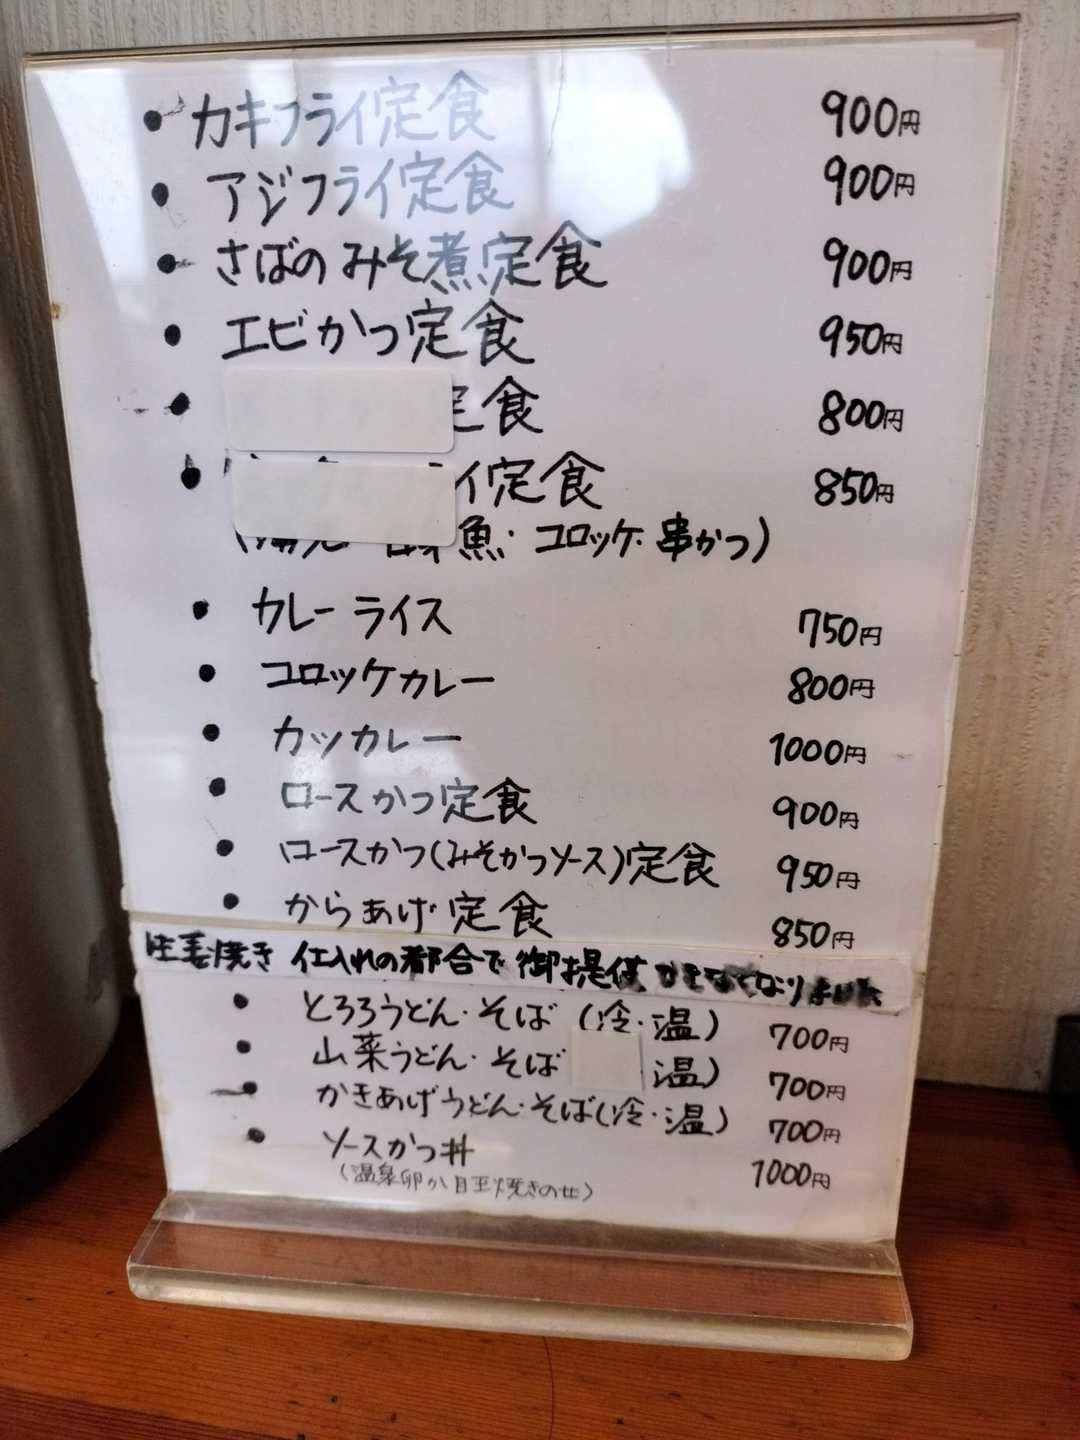 ・カキフライ定食 900円
・アジフライ定食 900円
・さばのみそ煮定食 900円
・エビかつ定食 950円
・定食 800円
・イ定食 850円
魚・コロッケ・串かつ)
・カレーライス 750円
・コロッケカレー 800円
・カツカレー 1000円
・ロースかつ定食 900円
・ロースかつ(みそかつソース)定食 950円
・からあげ定食 850円
生姜焼き 仕入れの都合で御提供できなくなりました
・とろろうどん・そば(冷・温) 700円
・山菜うどん・そば 温) 700円
・かきあげうどん・そば(冷・温) 700円
・ソースかつ丼 1000円
(温泉卵か目玉焼きのせ)